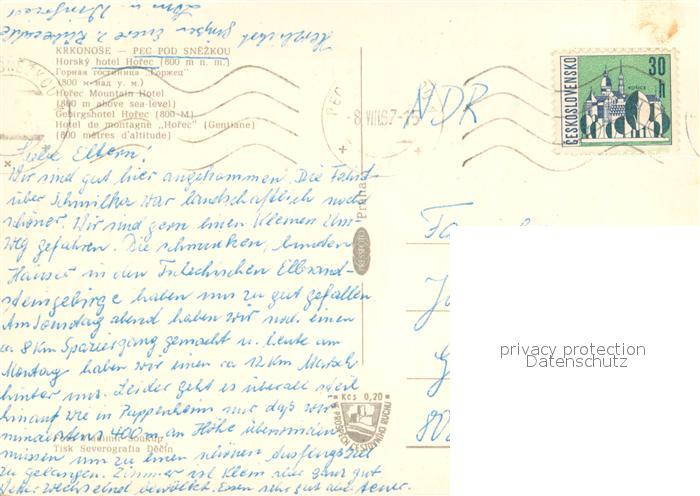 KRKONOŠE – PEC POD SNĚŽKOU
Horský hotel Hořec (800 m n. m.)
Горная гостиница „Горжец“
(800 м над у. м.)
Hořec Mountain Hotel
(800 m above sea-level)
Gebirgshotel Hořec (800 M)
Hotel de montagne „Hořec“ (Gentiane)
(800 mètres d'altitude)
NDR
ČESKOSLOVENSKO
30 h
PEC
8 VIII.67
Liebe Eltern!
Wir sind gut hier angekommen. Die Fahrt
über Schmilka war landschaftlich noch
schöner. Wir sind gern einen kleinen Um-
weg gefahren. Die schmucken, bunten
Häuser in den Tschechischen Elbsand-
steingebirge haben uns zu gut gefallen
Am Sonntag abend haben wir noch einen
ca. 8 km Spaziergang gemacht u. heute am
Montag haben wir einen ca 12 km Marsch
hinter uns. Leider geht es überall steil
hinauf wie in Pappenheim nur daß wir
mindestens 400 m an Höhe überwinden
müssen um zu einem schönen Ausflugsziel
zu gelangen. Zimmer ist klein aber ganz gut
Wetter wechselnd bewölkt. Essen sehr gut aber teuer.
Herzlichst grüßen Euch
Tisk Severografia Děčín
Kčs 0,20
Praha
Fa
80
privacy protection
Datenschutz